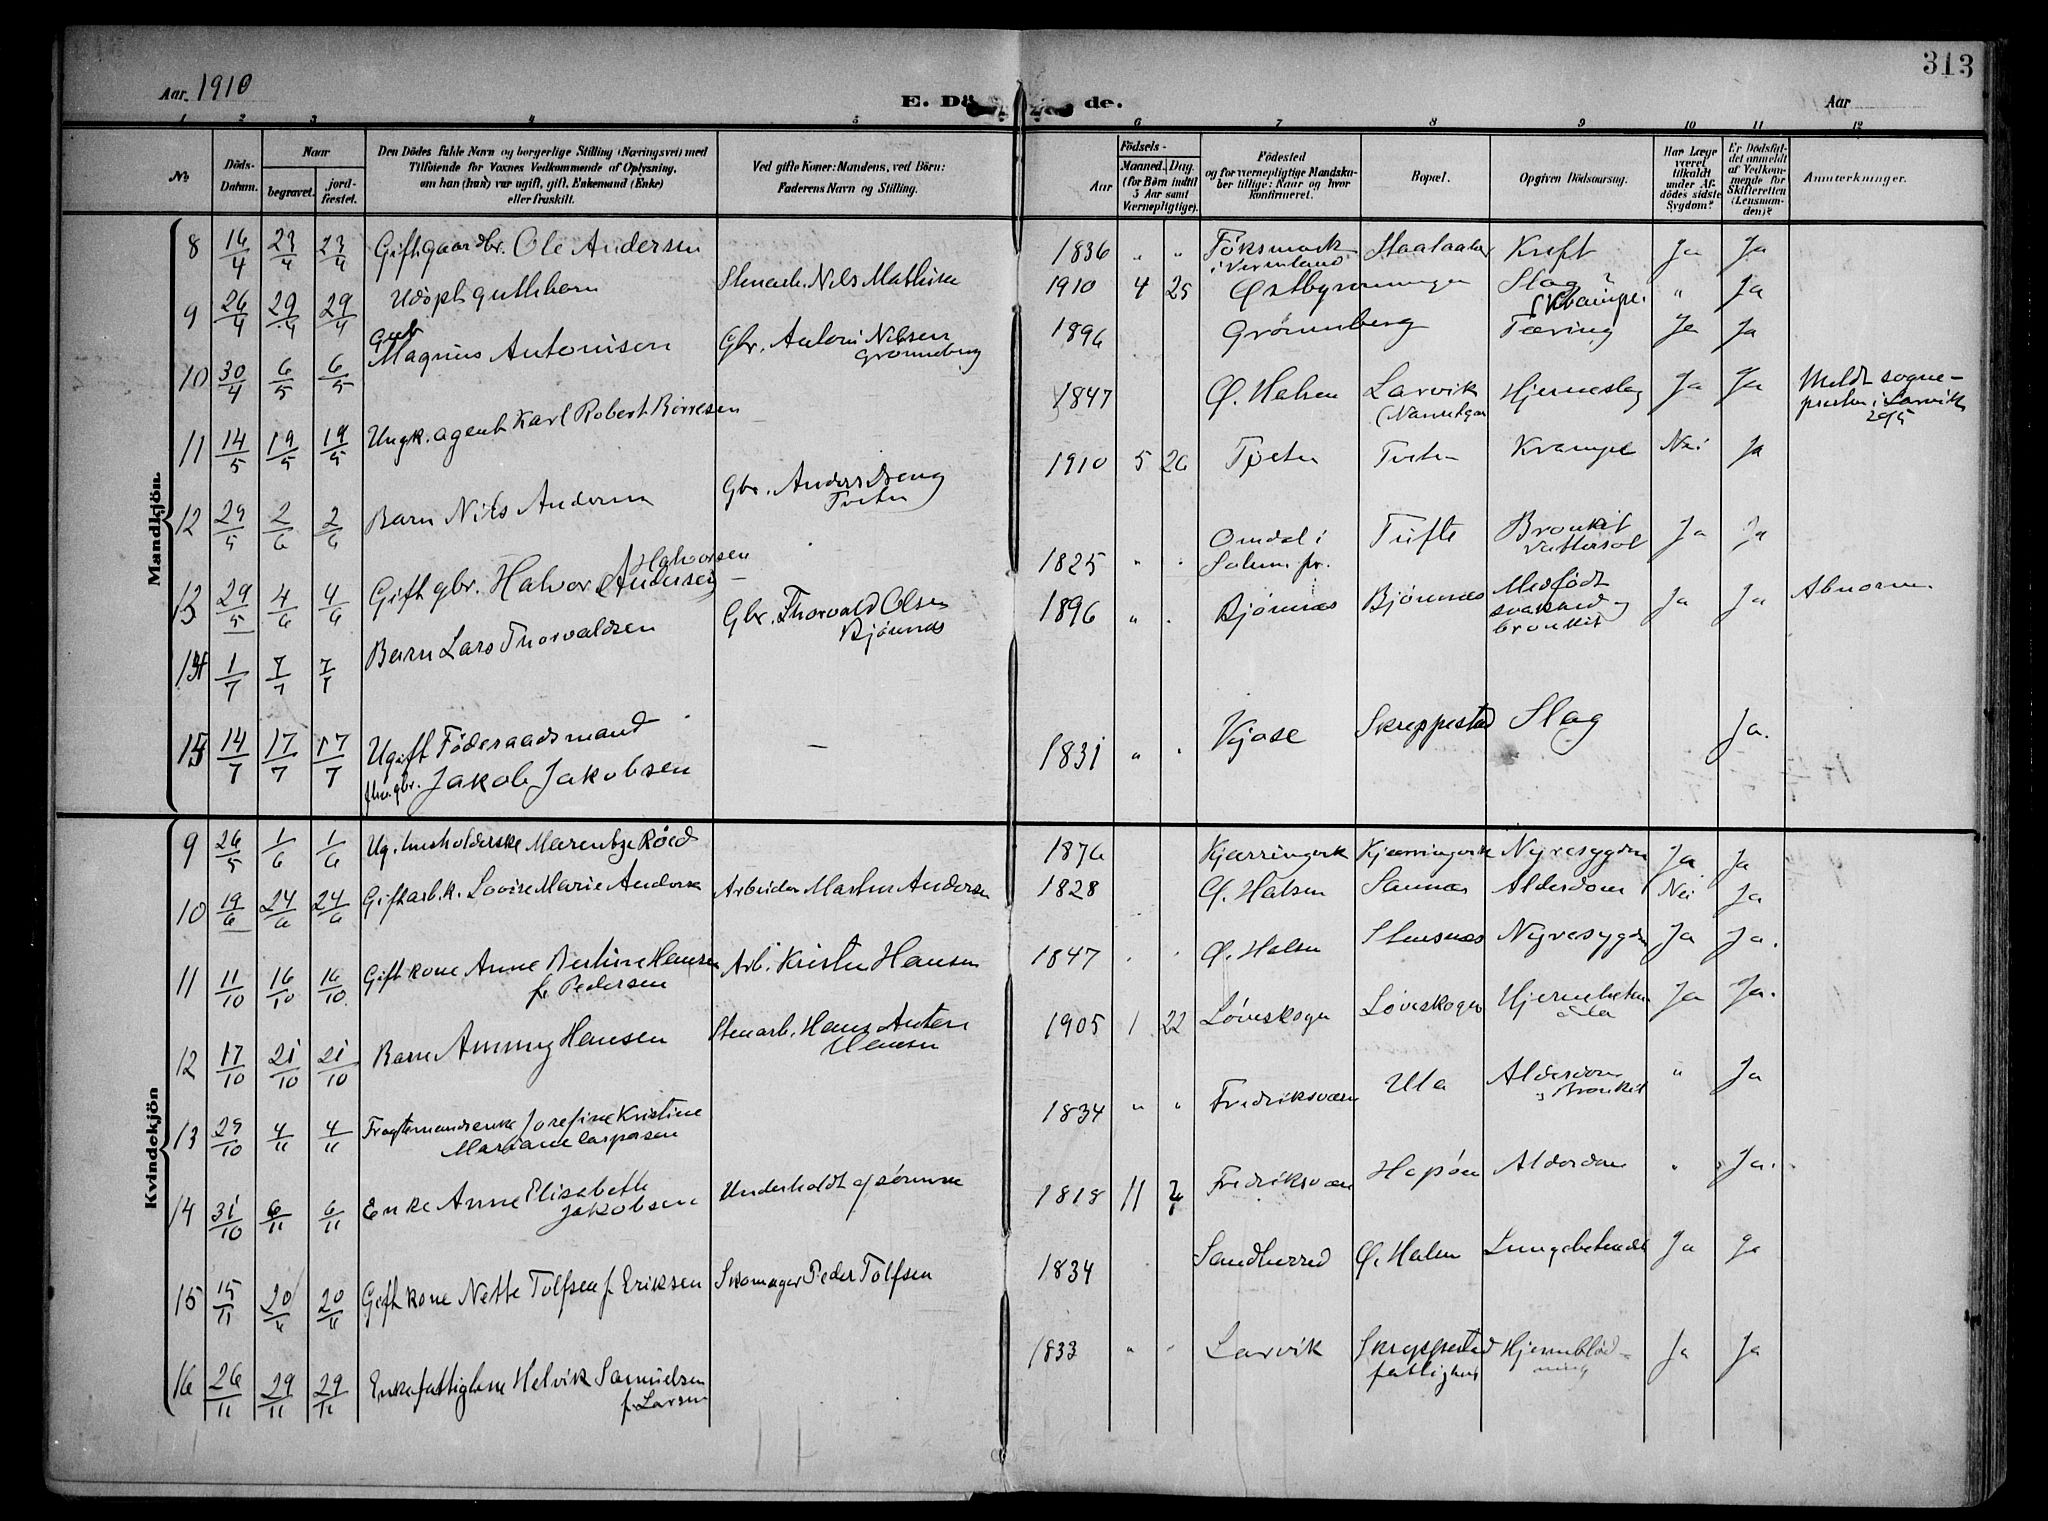 313
Aar 1910
E. Dö de.
Aar
1 2 3 4 5 6 7 8 9 10 11 12
No
Döds-Datum.
Naar
begravet.
jord-fæstet.
Den Dödes fulde Navn og borgerlige Stilling (Næringsvei) med
Tilföiende for Voxnes Vedkommende af Oplysning,
om han (hun) var ugift, gift, Enkemand (Enke)
eller fraskilt.
Ved gifte Koner: Mandens, ved Börn:
Faderens Navn og Stilling.
Födsels-
Aar
Maaned. Dag.
(for Børn indtil
5 Aar samt
Værnepligtige).
Födested
og for værnepligtige Mandska-
ber tillige: Naar og hvor
konfirmeret.
Bopæl.
Opgiven Dödsaarsag.
Har Læge
været
tilkaldt
under Af-
dødes sidste
Sygdom?
Er Dödsfal-
det anmeldt
af Vedkom-
mende for
Skifteretten
(Lensman-
den)?
Anmærkninger.
Mandkjön.
8 16/4 23/4 23/4 Gift gaardbr. Ole Andersen 1836 " " i Vermland Kreft Ja Ja
9 26/4 29/4 29/4 Udöpt guttebarn Stenarb. Nils Mathisen 1910 4 25 Slag? (Krampe) " Ja
10 30/4 6/5 6/5 Gut Magnus Antonisen Gbr. Anton Nilsen Grønneberg 1896 Grønneberg Tæring Ja Ja
11 14/5 19/5 19/5 Ungk. agent Karl Robert Børresen 1847 Ø. Halsen Larvik Hjerneslag Ja Ja Meldt sogne-
presten i Larvik 20/5
12 29/5 2/6 2/6 Barn Nils Andersen Gbr. Anders 1910 5 26 Krampe Nei Ja
13 29/5 4/6 4/6 Gift gbr. Halvor Andersen Halvorsen 1825 " " Omdal i Solum pr. Tufte Bronkit Vattersot Ja Ja
14 1/7 7/7 7/7 Barn Lars Thorvaldsen Gbr. Thorvald Olsen Bjønnes 1896 " . Bjønnes Bjønnes Medfødt svakhed og bronkit Ja Ja Abnorm
15 14/7 17/7 17/7 Ugift Föderaadsmand
fhv. gbr. Jakob Jakobsen — 1831 " " Kjose Skreppestad Slag Ja.
Kvindekjön
9 26/5 1/6 1/6 Ug. husholderske Røed 1876 Kjærringvik Kjærringvik Nyresygdom Ja Ja
10 19/6 24/6 24/6 Gift arb.k. Lovise Marie Andersen Arbeider Martin Andersen 1828 Ø. Halsen Sannes Alderdom Nei Ja
11 11/10 16/10 16/10 Gift kone Anne Bertine Hansen
f. Pedersen Arb. Krister Hansen 1847 . . Ø. Halsen Stensnæs Nyresygdom Ja Ja.
12 17/10 21/10 21/10 Barn Hansen Stenarb. Hans Anton Hansen 1905 1 22 Løveskogen Løveskogen Ja Ja.
13 29/10 4/11 4/11 Josefine Kristine
Mariane Caspersen 1834 " " Fredriksværn Ula Alderdom Bronkit " Ja
14 31/10 6/11 6/11 Enke Anne Elisabeth
Jakobsen Underholdt af sønnene 1818 11 Fredriksværn Alderdom " Ja.
15 15/11 20/11 20/11 Gift kone Nette Tolfsen f. Eriksen Skomager Peder Tolfsen 1834 Sandherred Ø. Halsen Lungebetændelse Ja Ja
16 26/11 29/11 29/11 Enke fattiglem Helvik Samuelsen
f. Larsen 1833 " " Larvik Skreppestad
fattighus Hjerneblød-
ning Ja Ja